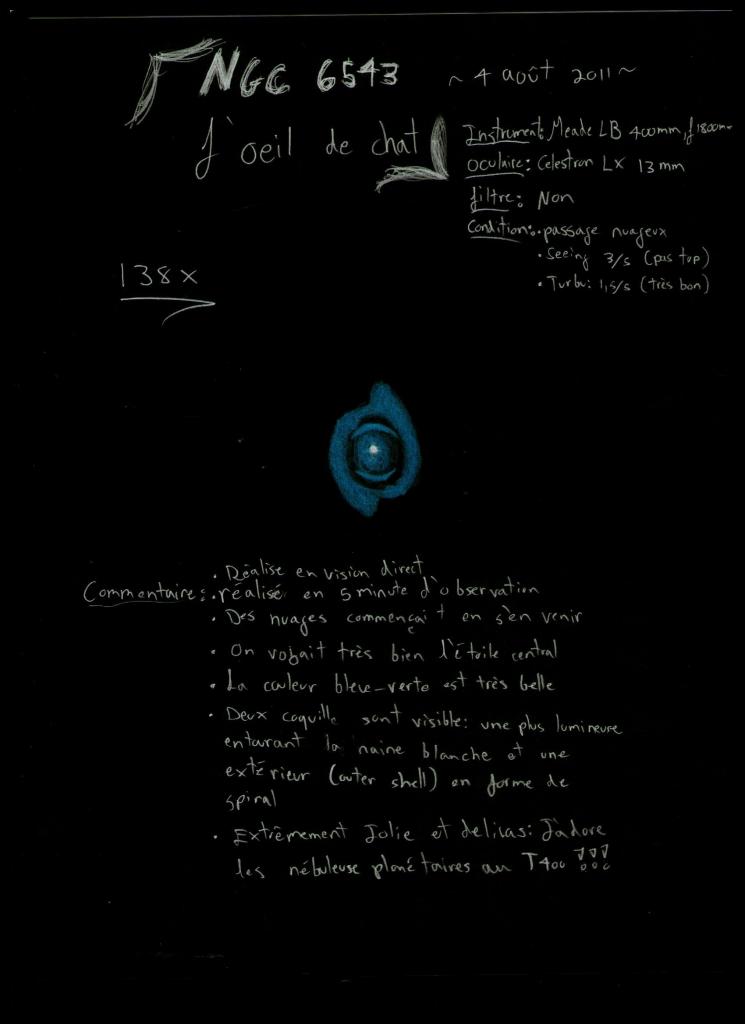 NGC 6543 ~ 4 août 2011 ~
l'oeil de chat
Instrument: Meade LB 400mm, f1800mm
Oculaire: Celestron LX 13 mm
filtre: Non
Condition: • passage nuageux
• Seeing 3/5 (pas top)
• Turbu: 1,5/5 (très bon)
138x
• Réalise en vision direct
Commentaire: • réalisé en 5 minute d'observation
• Des nuages commençait en s'en venir
• On voyait très bien l'étoile central
• La couleur bleue-verte est très belle
• Deux coquille sont visible: une plus lumineure
entourant la naine blanche et une
extérieur (outer shell) en forme de
spiral
• Extrêmement Jolie et delicas: J'adore
les nébuleuse planétaires au T400 !!!